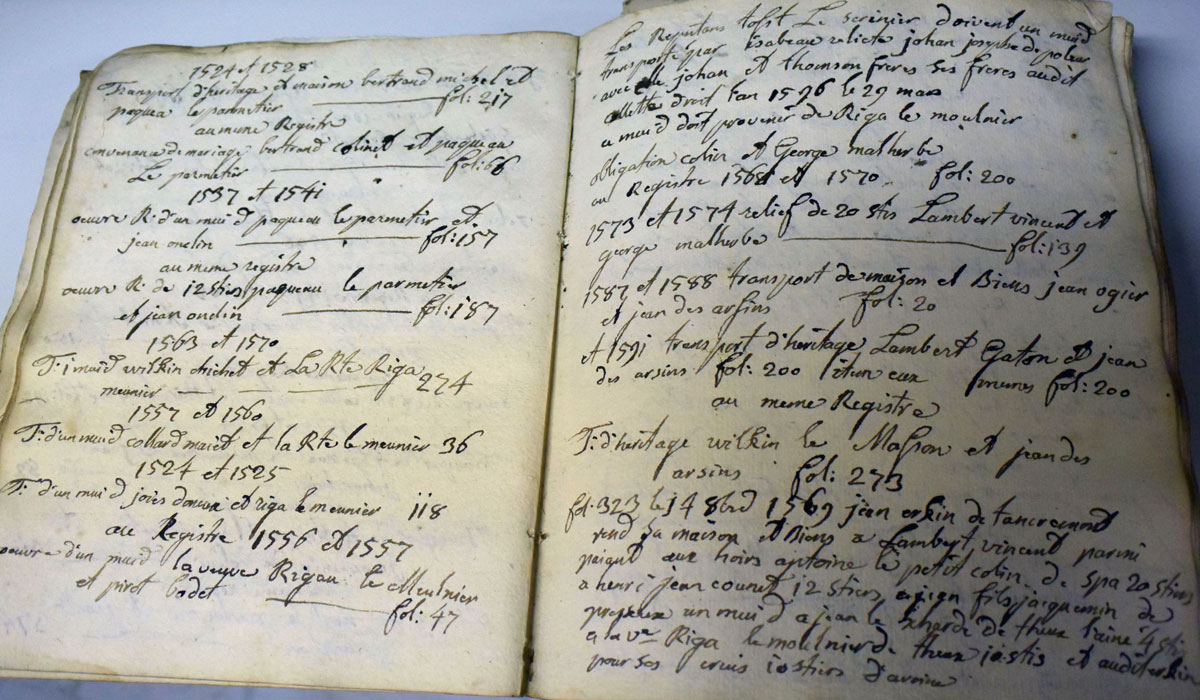 1524 et 1528
Transport d'heritage et maison bertrand michel et
paquea le parmetier fol: 217
au meme Registre
convenance de mariage bertrand colinet et paqueau
Le parmetier fol: 66
1537 et 1541
oeuvre R: d'un muid paqueau le parmetier et
jean onclin fol: 157
au meme registre
oeuvre R: de 12 stiers paqueau le parmetier
et jean onclin fol: 187
1563 et 1570
T: 1 muid wilkin chichet et La Rte Riga
meunier 274
1557 et 1560
T: d'un muid collard maiet et la Rte le meunier 36
1524 et 1525
T: d'un muid et riga le meunier 118
au Registre 1556 et 1557
oeuvre d'un muid la veuve Rigau le Meulnier
et pirot bodet fol: 47
Les Reputans tost Le scrinier doivent un muid
transporte par isabeau relicte johan josephe de
avec elle johan et thomson freres ses freres audit
allette droit l'an 1596 le 29 mars
a muid doit provenir de Riga le moulnier
obligation colin et George malherbe
au Registre 1568 et 1570 fol: 200
1573 et 1574 relief de 20 stis Lambert vincent et
george malherbe fol: 139
1587 et 1588 transport de maison et Biens jean ogier
et jean des arsins fol: 20
et 1591 transport d'heritage Lambert Gaton et jean
des arsins fol: 200 munes fol: 200
au meme Registre
T: d'heritage wilkin le Masson et jean des
arsins fol: 273
fol: 323 le 14 8bre 1569 jean erkin de tancremont
rend sa maison et Biens a Lambert vincent parmi
paiant aux hoirs antoine le petit colin de spa 20 stiers
a henri jean counet 12 stiers a gign fils jacquemin de
prepeux un muid a jean le de theux l'aine 4 stis
a la vve Riga le moulnier de theux 10 stis et audit erkin
pour ses 10 stiers d'avoine